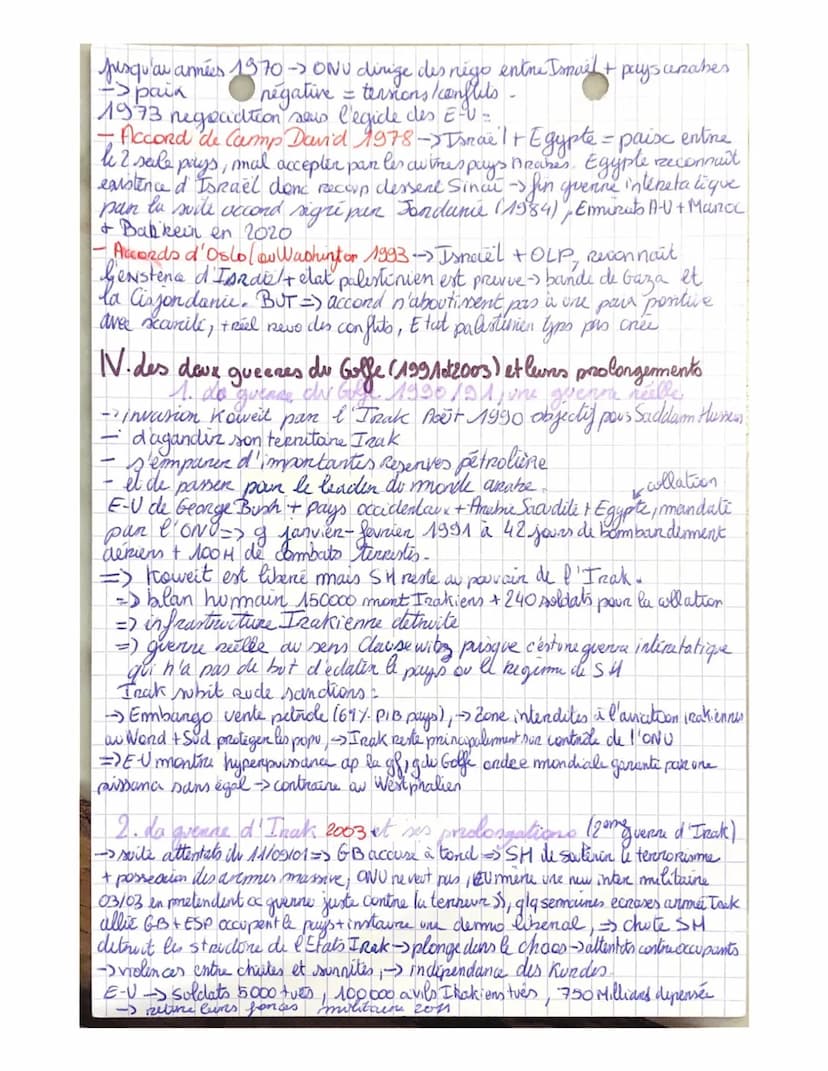 Jusqu'au années 1970 -> ONU dirige des négo entre Israël + pays arabes
-> paix négative = tensions/conflits -
1973 negociation sous l'egide des E-U =
- Accord de Camp David 1978 -> Israël + Egypte = paix entre
le 2 seule pays, mal accepter par les autres pays Arabes. Egypte reconnait
existence d'Israël donc recup desert Sinaï -> fin guerre interetatique
par la suite accord signé par Jordanie (1984), Emirats A-U + Maroc
+ Bahrein en 2020
- Accords d'Oslo (ou Washington 1993 -> Israël + OLP, reconnait
l'existence d'Israël + état palestinien est prevue -> bande de Gaza et
la Cisjordanie. BUT => accord n'aboutissent pas à une paix positive
avec sécurité, + réel reso des conflits, Etat palestinien tjrs pas créé
IV. des deux guerres du Golfe (1991 et 2003) et leurs prolongements
1. La guerre du Golfe 1990/91, une guerre réelle
-> invasion Koweit par l'Irak Août 1990 objectif pour Saddam Hussein
- d'agandir son territoire Irak
- s'emparer d'importantes reserves pétrolière
- et de passer pour le leader du monde arabe.
collation
E-U de George Bush + pays occidentaux + Arabie Saoudite + Egypte, mandaté
par l'ONU => g janvier-fevrier 1991 à 42 jours de bombardement
aériens + 100H de combats terrestres -
=> Koweit est liberé mais SH reste au pouvoir de l'Irak.
=> bilan humain 150000 mort Irakiens + 240 soldats pour la collation
=> infrastructure Irakienne detruite
=> guerre réelle au sens Clausewitz puisque c'est une guerre interetatique
qui n'a pas de but d'eclater le pays ou le regime de SH
Irak subit sanctions :
-> Embargo vente petrole (61% PIB pays), -> Zone interdites à l'aviation irakiennes
au Nord + Sud proteger les popu, -> Irak reste principalement sur contrôle de l'ONU
=> E-U montre hyperpuissance ap la gf, g du Golfe ordre mondiale garantie par une
puissance sans égal -> contraire au Westphalien
2. La guerre d'Irak 2003 et ses prolongations (2eme guerre d'Irak)
-> suite attentats du 11/09/01 => GB accuse à tord => SH de soutenir le terrorisme
+ possession des armes massive, ONU ne veut pas, EU mène une new inter militaire
03/03 en pretendent "guerre juste contre la terreur", qlq semaines ecrases armée Irak
allié GB + ESP occupent le pays + instaure une demo liberal, => chute SH
detruit les structure de l'Etats Irak -> plonge dans le chaos -> attentats contre occupants
-> violences entre chiites et sunnites, -> indépendance des Kurdes.
E-U -> soldats 5000 tués, 100 000 civils Irakiens tués, 750 Milliards depensée
-> retire leurs forces militaire 2011